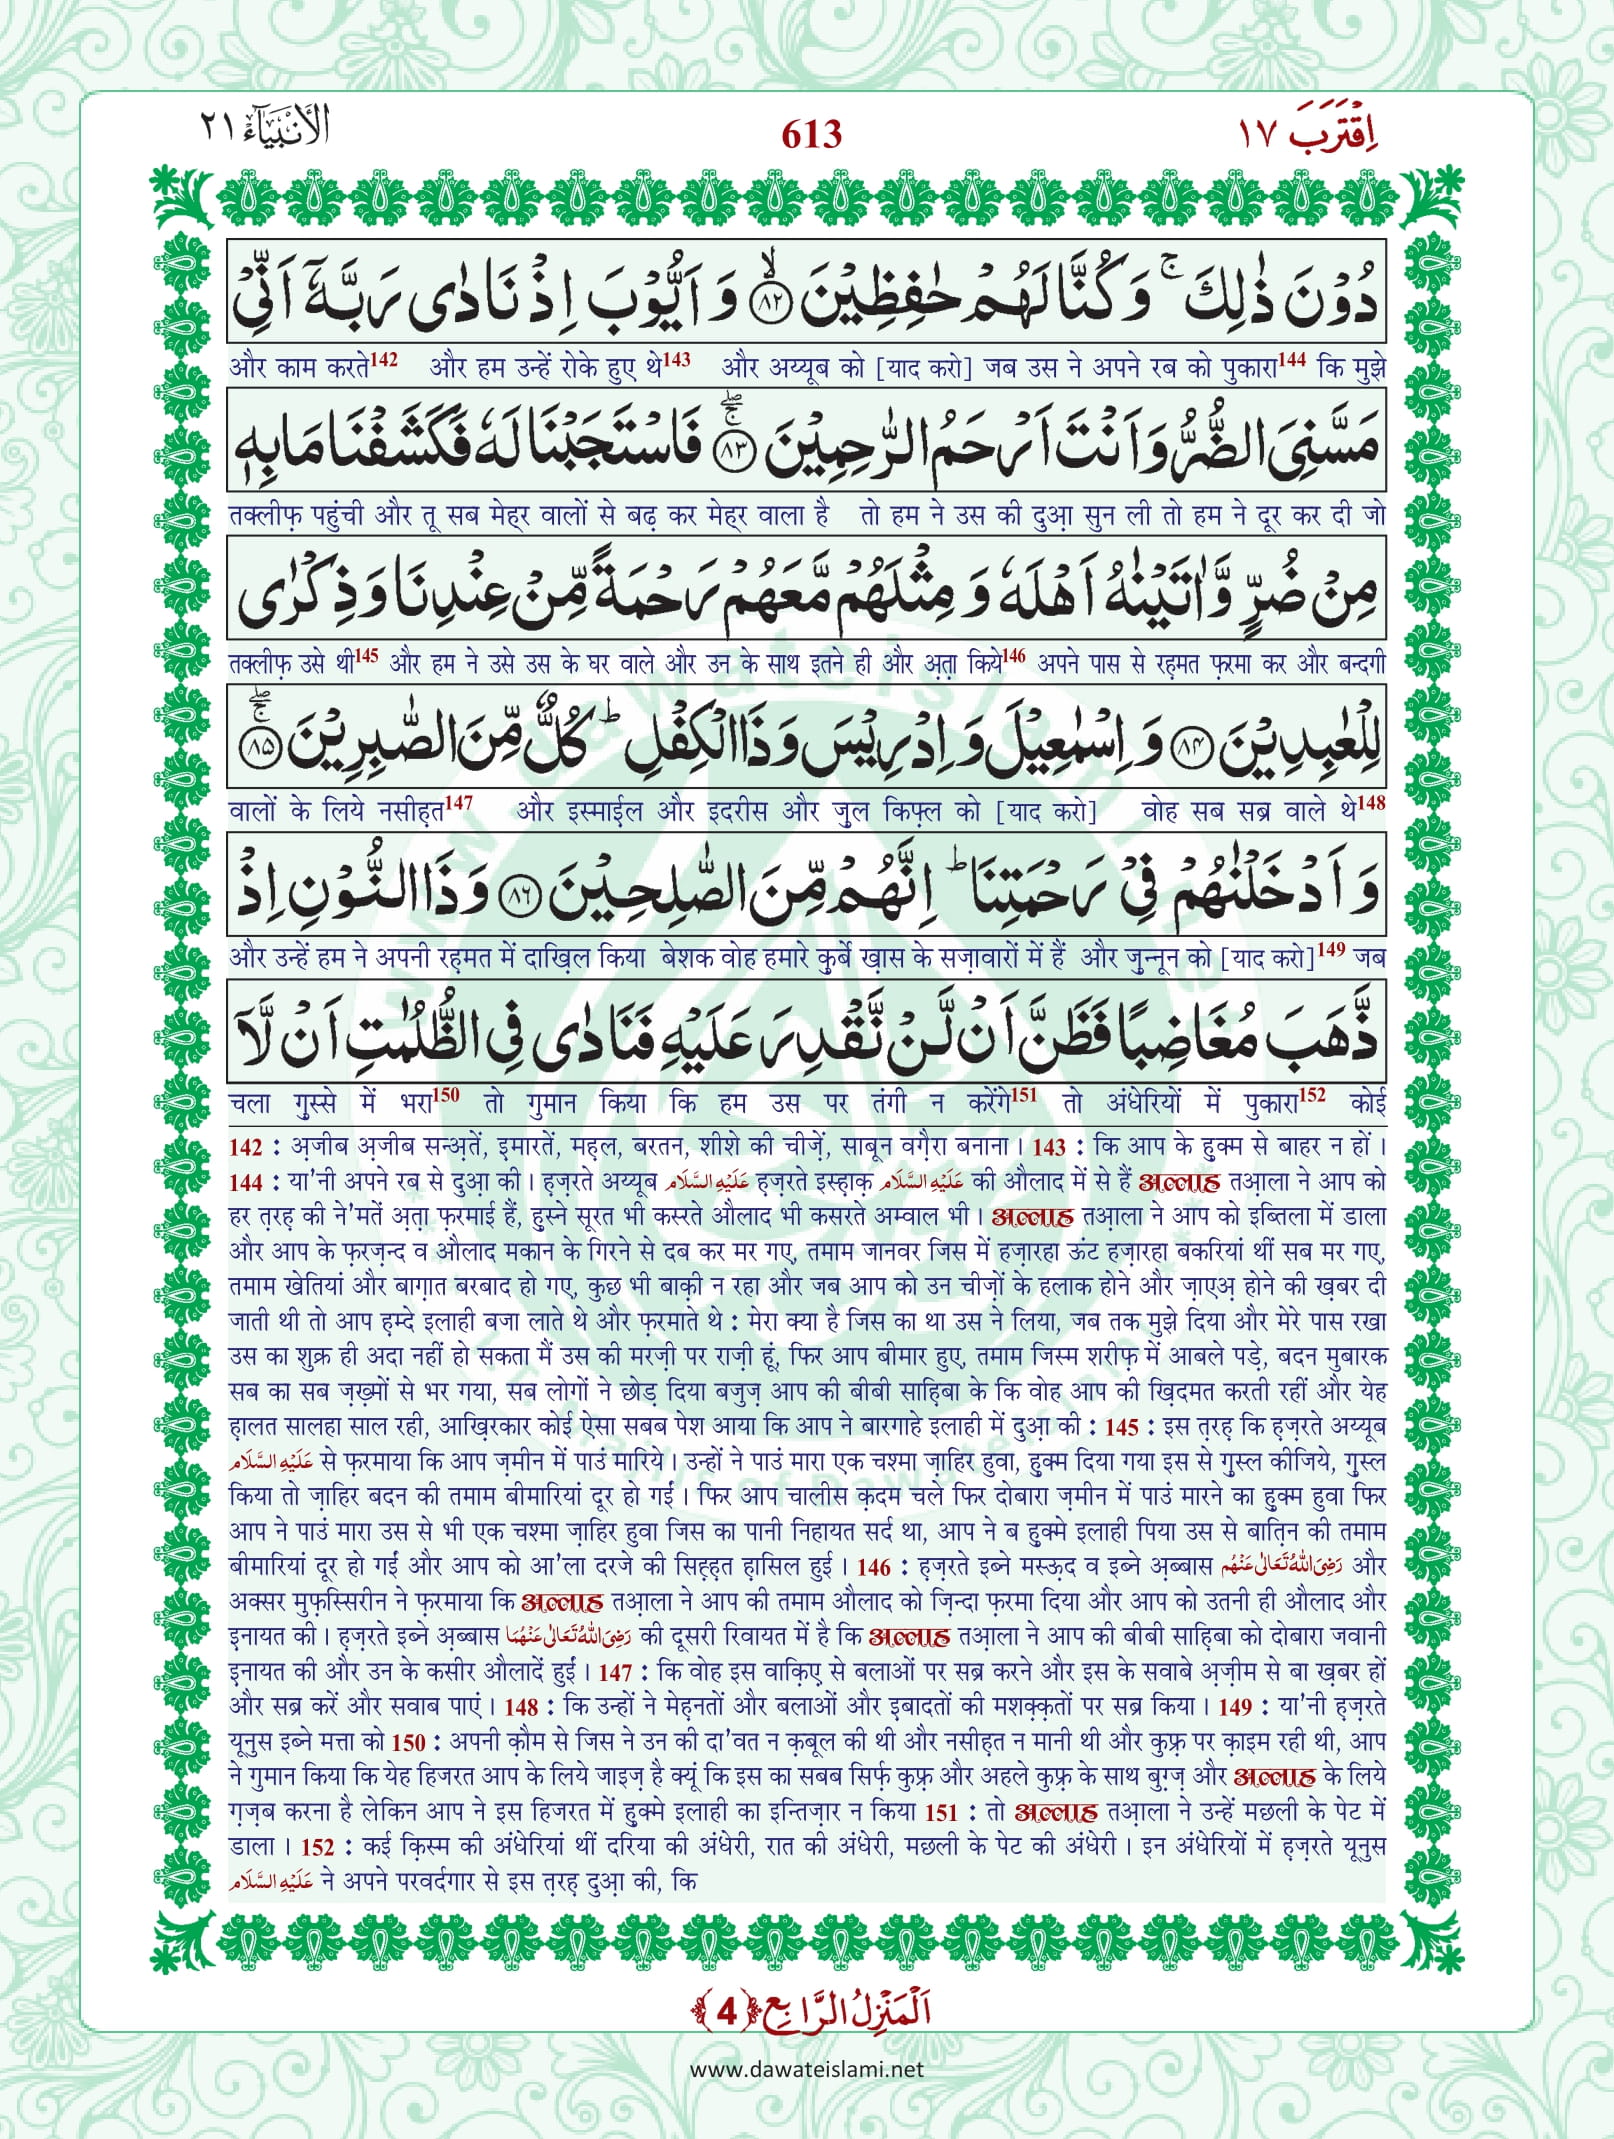 اِقْتَرَبَ ١٧
613
الْاَنْبِيَآء ٢١
دُوْنَ ذٰلِكَ ۚ وَ كُنَّا لَهُمْ حٰفِظِيْنَ ۙ﴿۸۲﴾ وَ اَيُّوْبَ اِذْ نَادٰى رَبَّهٗۤ اَنِّىْ
और काम करते142 और हम उन्हें रोके हुए थे143 और अय्यूब को [याद करो] जब उस ने अपने रब को पुकारा144 कि मुझे
مَسَّنِىَ الضُّرُّ وَ اَنْتَ اَرْحَمُ الرّٰحِمِيْنَ ۚۖ﴿۸۳﴾ فَاسْتَجَبْنَا لَهٗ فَكَشَفْنَا مَا بِهٖ
तक्लीफ़ पहुंची और तू सब मेह्र वालों से बढ़ कर मेह्र वाला है तो हम ने उस की दुआ़ सुन ली तो हम ने दूर कर दी जो
مِنْ ضُرٍّ وَّ اٰتَيْنٰهُ اَهْلَهٗ وَ مِثْلَهُمْ مَّعَهُمْ رَحْمَةً مِّنْ عِنْدِنَا وَ ذِكْرٰى
तक्लीफ़ उसे थी145 और हम ने उसे उस के घर वाले और उन के साथ इतने ही और अ़त़ा किये146 अपने पास से रह़मत फ़रमा कर और बन्दगी
لِلْعٰبِدِيْنَ ﴿۸۴﴾ وَ اِسْمٰعِيْلَ وَ اِدْرِيْسَ وَ ذَا الْكِفْلِ ؕ كُلٌّ مِّنَ الصّٰبِرِيْنَ ۚۖ﴿۸۵﴾
वालों के लिये नसीह़त147 और इस्माईल और इदरीस और ज़ुल किफ़्ल को [याद करो] वोह सब सब्र वाले थे148
وَ اَدْخَلْنٰهُمْ فِىْ رَحْمَتِنَا ؕ اِنَّهُمْ مِّنَ الصّٰلِحِيْنَ ﴿۸۶﴾ وَ ذَا النُّوْنِ اِذْ
और उन्हें हम ने अपनी रह़मत में दाख़िल किया बेशक वोह हमारे क़ुर्बे ख़ास के सज़ावारों में हैं और ज़ुन्नून को [याद करो]149 जब
ذَّهَبَ مُغَاضِبًا فَظَنَّ اَنْ لَّنْ نَّقْدِرَ عَلَيْهِ فَنَادٰى فِى الظُّلُمٰتِ اَنْ لَّاۤ
चला ग़ुस्से में भरा150 तो गुमान किया कि हम उस पर तंगी न करेंगे151 तो अंधेरियों में पुकारा152 कोई
142 : अ़जीब अ़जीब सन्अ़तें, इ़मारतें, मह़ल, बरतन, शीशे की चीज़ें, साबून वग़ैरा बनाना । 143 : कि आप के हु़क्म से बाहर न हों ।
144 : या'नी अपने रब से दुआ़ की । ह़ज़रते अय्यूब عَلَيْهِ السَّلَام ह़ज़रते इस्ह़ाक़ عَلَيْهِ السَّلَام की औलाद में से हैं अल्लाह तआ़ला ने आप को
हर त़रह़ की ने'मतें अ़त़ा फ़रमाई हैं, ह़ुस्ने सूरत भी कस्रते औलाद भी कसरते अम्वाल भी । अल्लाह तआ़ला ने आप को इब्तिला में डाला
और आप के फ़रज़न्द व औलाद मकान के गिरने से दब कर मर गए, तमाम जानवर जिस में हज़ारहा ऊंट हज़ारहा बकरियां थीं सब मर गए,
तमाम खेतियां और बाग़ात बरबाद हो गए, कुछ भी बाक़ी न रहा और जब आप को उन चीज़ों के हलाक होने और ज़ाएअ़ होने की ख़बर दी
जाती थी तो आप ह़म्दे इलाही बजा लाते थे और फ़रमाते थे : मेरा क्या है जिस का था उस ने लिया, जब तक मुझे दिया और मेरे पास रखा
उस का शुक्र ही अदा नहीं हो सकता मैं उस की मरज़ी पर राज़ी हूं, फिर आप बीमार हुए, तमाम जिस्म शरीफ़ में आबले पड़े, बदन मुबारक
सब का सब ज़ख़्मों से भर गया, सब लोगों ने छोड़ दिया बजुज़ आप की बीबी साह़िबा के कि वोह आप की ख़िदमत करती रहीं और येह
ह़ालत सालहा साल रही, आख़िरकार कोई ऐसा सबब पेश आया कि आप ने बारगाहे इलाही में दुआ़ की : 145 : इस त़रह़ कि ह़ज़रते अय्यूब
عَلَيْهِ السَّلَام से फ़रमाया कि आप ज़मीन में पाउं मारिये । उन्हों ने पाउं मारा एक चश्मा ज़ाहिर हुवा, हु़क्म दिया गया इस से ग़ुस्ल कीजिये, ग़ुस्ल
किया तो ज़ाहिर बदन की तमाम बीमारियां दूर हो गईं । फिर आप चालीस क़दम चले फिर दोबारा ज़मीन में पाउं मारने का हु़क्म हुवा फिर
आप ने पाउं मारा उस से भी एक चश्मा ज़ाहिर हुवा जिस का पानी निहायत सर्द था, आप ने ब हु़क्मे इलाही पिया उस से बात़िन की तमाम
बीमारियां दूर हो गईं और आप को आ'ला दरजे की सिह़्ह़त ह़ासिल हुई । 146 : ह़ज़रते इब्ने मस्ऊ़द व इब्ने अ़ब्बास رَضِىَ اللهُ تَعَالٰى عَنْهُم और
अक्सर मुफ़स्सिरीन ने फ़रमाया कि अल्लाह तआ़ला ने आप की तमाम औलाद को ज़िन्दा फ़रमा दिया और आप को उतनी ही औलाद और
इनायत की । ह़ज़रते इब्ने अ़ब्बास رَضِىَ اللهُ تَعَالٰى عَنْهُمَا की दूसरी रिवायत में है कि अल्लाह तआ़ला ने आप की बीबी साह़िबा को दोबारा जवानी
इनायत की और उन के कसीर औलादें हुईं । 147 : कि वोह इस वाक़िए से बलाओं पर सब्र करने और इस के सवाबे अ़ज़ीम से बा ख़बर हों
और सब्र करें और सवाब पाएं । 148 : कि उन्हों ने मेह़नतों और बलाओं और इ़बादतों की मशक़्क़तों पर सब्र किया । 149 : या'नी ह़ज़रते
यूनुस इब्ने मत्ता को 150 : अपनी क़ौम से जिस ने उन की दा'वत न क़बूल की थी और नसीह़त न मानी थी और कुफ़्र पर क़ाइम रही थी, आप
ने गुमान किया कि येह हिजरत आप के लिये जाइज़ है क्यूं कि इस का सबब सिर्फ़ कुफ़्र और अहले कुफ़्र के साथ बुग़्ज़ और अल्लाह के लिये
ग़ज़ब करना है लेकिन आप ने इस हिजरत में हु़क्मे इलाही का इन्तिज़ार न किया 151 : तो अल्लाह तआ़ला ने उन्हें मछली के पेट में
डाला । 152 : कई क़िस्म की अंधेरियां थीं दरिया की अंधेरी, रात की अंधेरी, मछली के पेट की अंधेरी । इन अंधेरियों में ह़ज़रते यूनुस
عَلَيْهِ السَّلَام ने अपने परवर्दगार से इस त़रह़ दुआ़ की, कि
اَلْمَنْزِلُ الرَّابِع ﴿4﴾
www.dawateislami.net